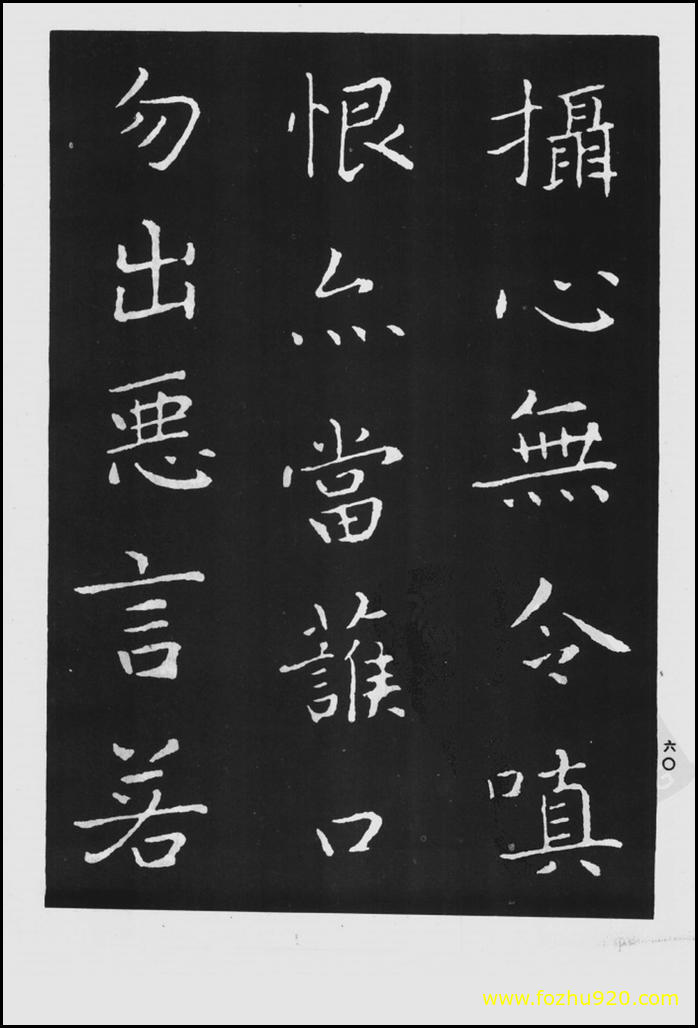 攝心無令嗔
恨亦當護口
勿出悪言若
六〇
www.fozhu920.com